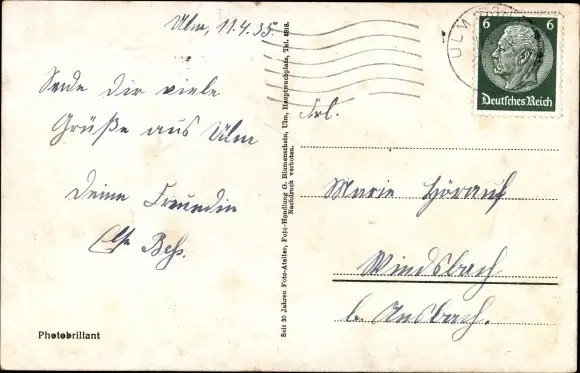 Ulm, 11.4.35.
Sende dir viele
Grüße aus Ulm
Deine Freundin
Photobrillant
Seit 30 Jahren Foto-Atelier, Foto-Handlung G. Blumenschein, Ulm, Hauptwachplatz, Tel.
Nachdruck verboten.
ULM
6 6
Deutsches Reich
Frl.
Marie Hörauf
Windsbach
b. Ansbach.